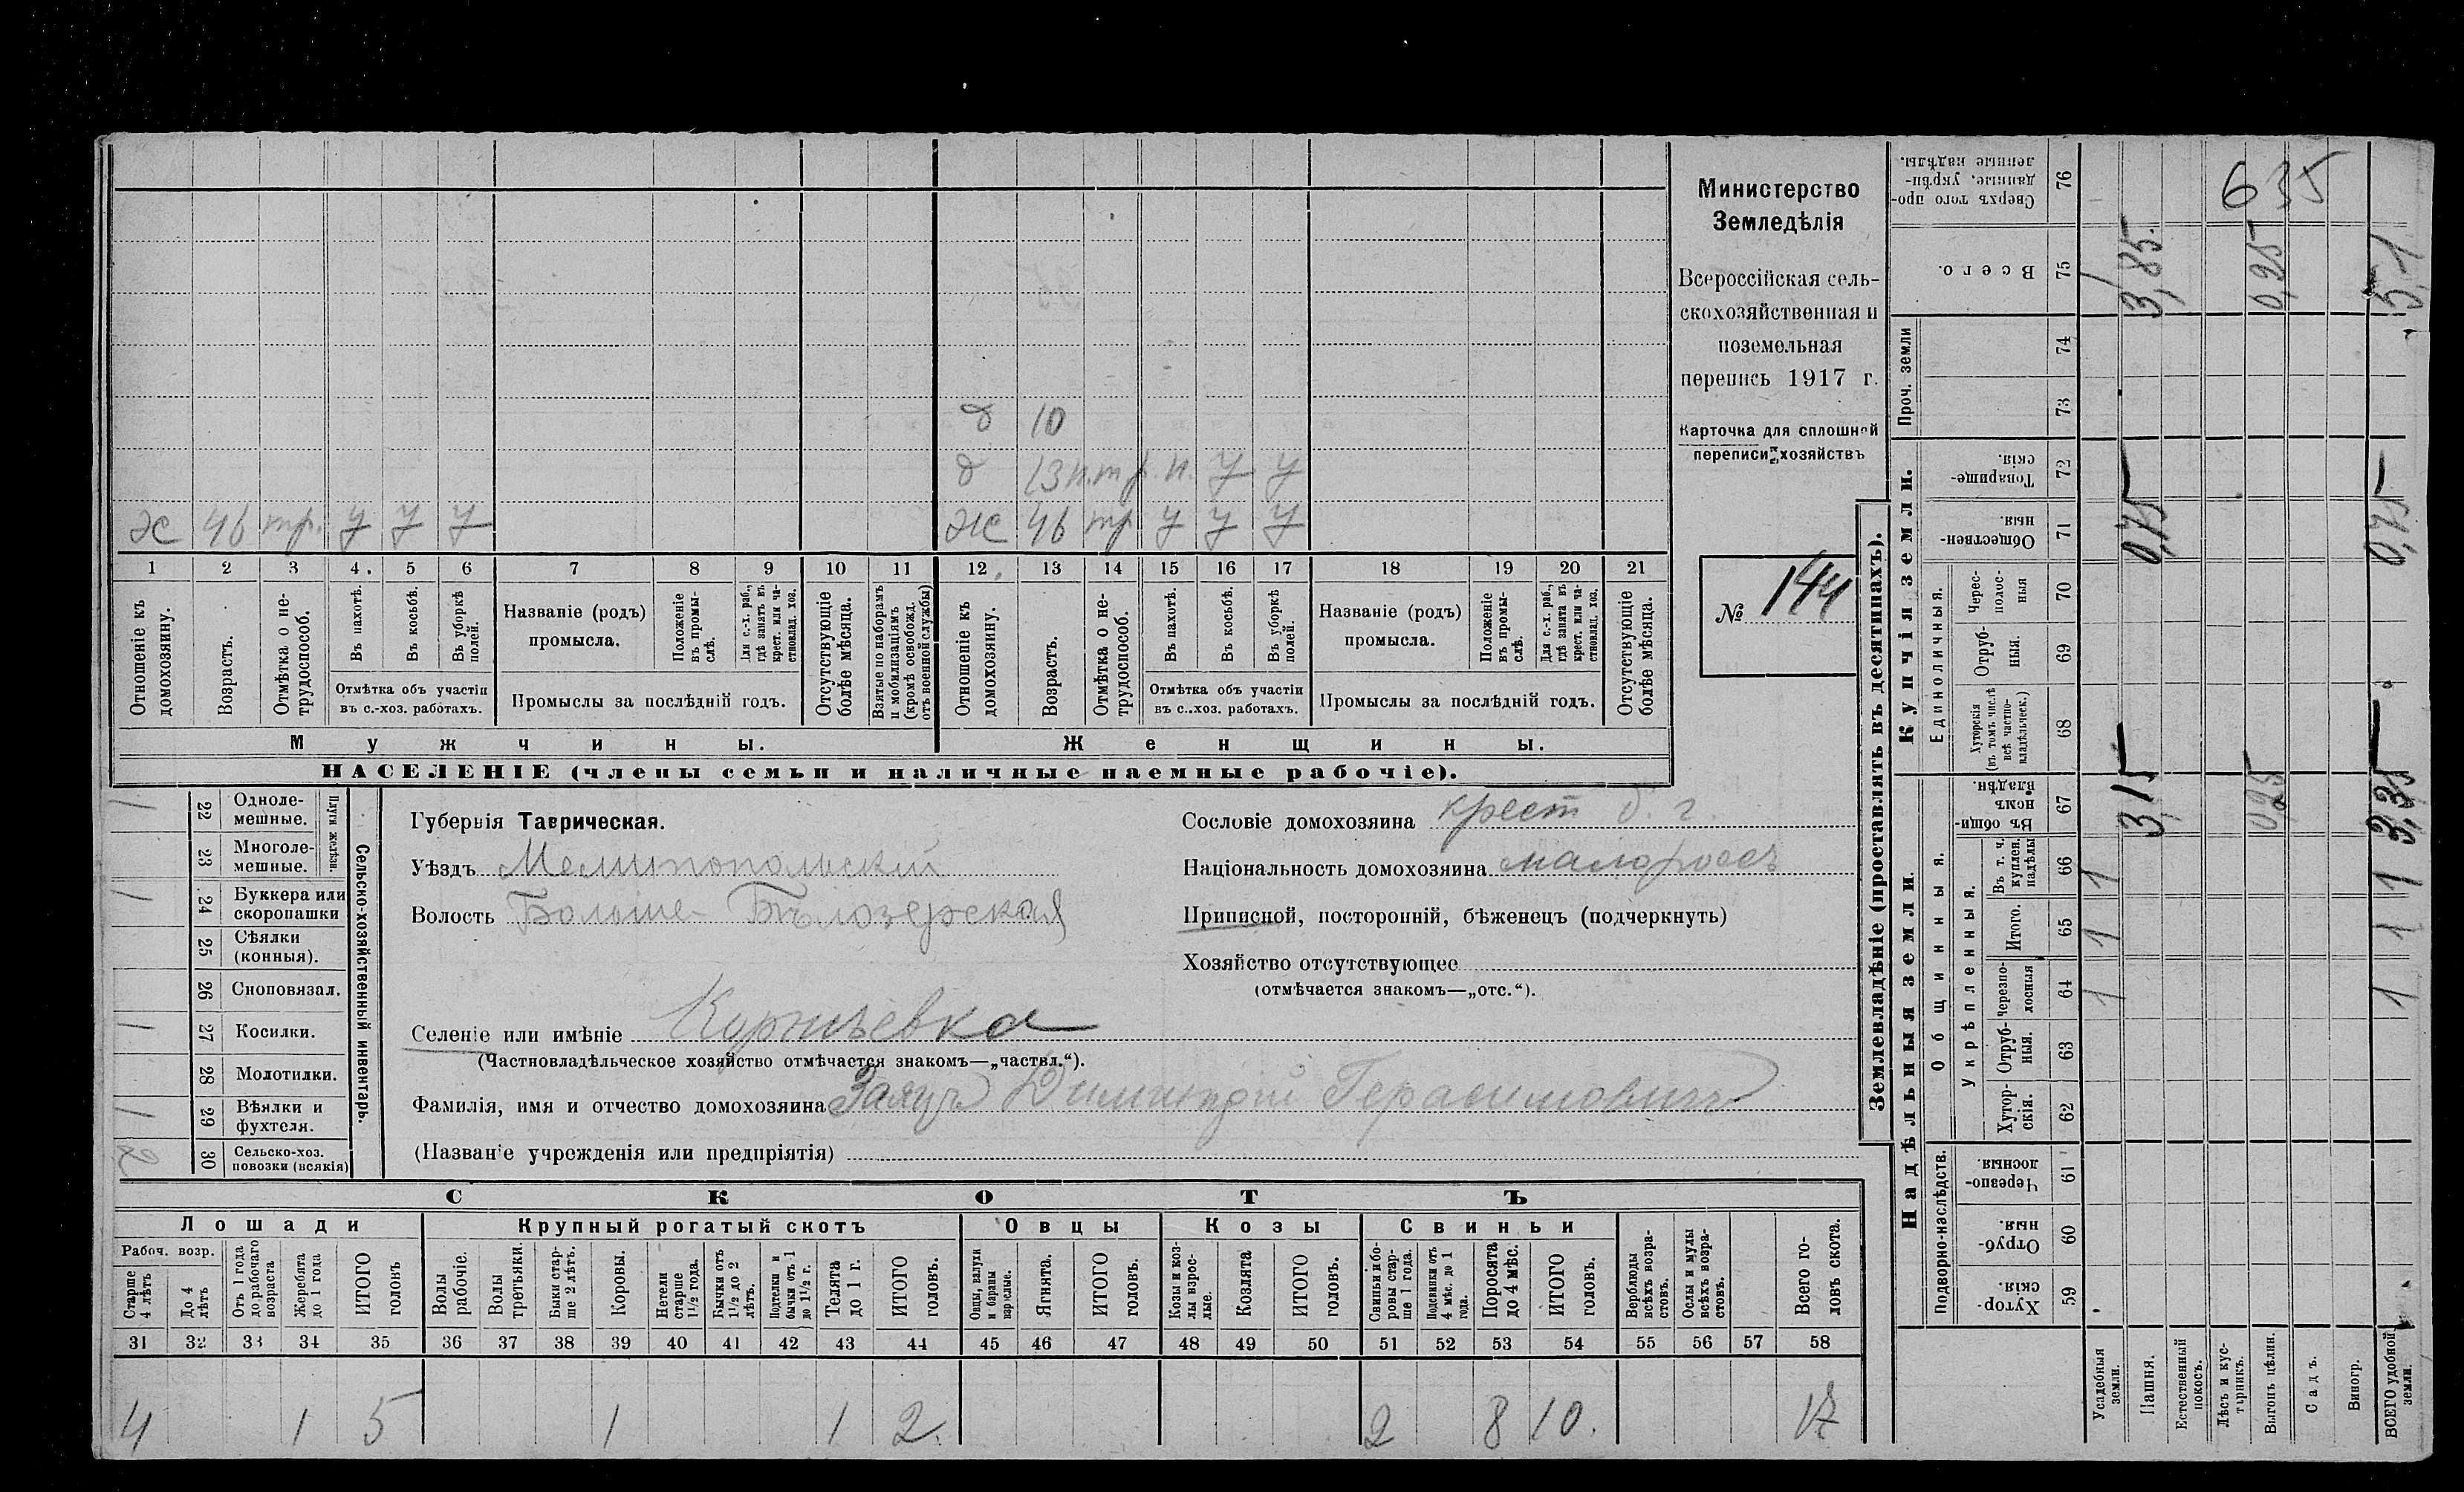 Министерство
Земледѣлія
Всероссійская сель-
скохозяйственная и
поземельная
перепись 1917 г.
Карточка для сплошной
переписи хозяйствъ
№ 144
д 10
д 13 н.тр. н. у у
ж 46 тр. у у у
ж 46 тр у у у
1 2 3 4 5 6 7 8 9 10 11 12 13 14 15 16 17 18 19 20 21
Отношеніе къ домохозяину.
Возрастъ.
Отмѣтка о не-трудоспособ.
Въ пахотѣ.
Въ косьбѣ.
Въ уборкѣ полей.
Отмѣтка объ участіи
въ с.-хоз. работахъ.
Названіе (родъ)
промысла.
Положеніе въ промы-слѣ.
Для с.-х. раб., гдѣ занятъ въ крест. или ча-стновлад. хоз.
Промыслы за послѣдній годъ.
Отсутствующіе болѣе мѣсяца.
Взятые по наборамъ и мобилизаціямъ (кромѣ освобожд. отъ военной службы)
Отношеніе къ домохозяину.
Возрастъ.
Отмѣтка о не-трудоспособ.
Въ пахотѣ.
Въ косьбѣ.
Въ уборкѣ полей.
Отмѣтка объ участіи
въ с..хоз. работахъ.
Названіе (родъ)
промысла.
Положеніе въ промы-слѣ.
Для с.-х. раб., гдѣ занята въ крест. или ча-стновлад. хоз.
Промыслы за послѣдній годъ.
Отсутствующіе болѣе мѣсяца.
Мужчины.
Женщины.
НАСЕЛЕНІЕ (члены семьи и наличные наемные рабочіе).
Сельско-хозяйственный инвентарь.
Плуги желѣзн.
1 22 Одноле-мешные.
23 Многоле-мешные.
1 24 Буккера или скоропашки
25 Сѣялки (конныя).
26 Сноповязал.
1 27 Косилки.
28 Молотилки.
1 29 Вѣялки и фухтеля.
2 30 Сельско-хоз. повозки (всякія)
Губернія Таврическая.
Уѣздъ Мелитопольскій
Волость Больше-Бѣлозерская
Селеніе или имѣніе Корнѣевка
(Частновладѣльческое хозяйство отмѣчается знакомъ—„частвл.“).
Фамилія, имя и отчество домохозяина Заяцъ Димитрій Герасимовичъ
(Названіе учрежденія или предпріятія)
Сословіе домохозяина крест б. г.
Національность домохозяина малороссъ
Приписной, посторонній, бѣженецъ (подчеркнуть)
Хозяйство отсутствующее
(отмѣчается знакомъ—„отс.“).
СКОТЪ
Лошади
Крупный рогатый скотъ
Овцы
Козы
Свиньи
Рабоч. возр.
Старше 4 лѣтъ
До 4 лѣтъ
Отъ 1 года до рабочаго возраста
Жеребята до 1 года
ИТОГО головъ
Волы рабочіе.
Волы третьяки.
Быки стар-ше 2 лѣтъ.
Коровы.
Нетели старше 1½ года.
Бычки отъ 1½ до 2 лѣтъ.
Подтелки и бычки отъ 1 до 1½ г.
Телята до 1 г.
ИТОГО головъ.
Овцы, валухи и бараны взрослые.
Ягнята.
ИТОГО головъ.
Козы и коз-лы взрос-лые.
Козлята
ИТОГО головъ.
Свиньи и бо-ровы стар-ше 1 года.
Подсвинки отъ 4 мѣс. до 1 года.
Поросята до 4 мѣс.
ИТОГО головъ.
Верблюды всѣхъ возра-стовъ.
Ослы и мулы всѣхъ возра-стовъ.
Всего го-ловъ скота.
31 32 33 34 35 36 37 38 39 40 41 42 43 44 45 46 47 48 49 50 51 52 53 54 55 56 57 58
4 1 5 1 1 2. 2 8 10. 17
Землевладѣніе (проставлять въ десятинахъ).
Надѣльныя земли
Купчія земли.
Проч. земли
Подворно-наслѣдств.
Общинныя.
Укрѣпленныя.
Единоличныя.
59 Хутор-скія.
60 Отруб-ныя.
61 Черезпо-лосныя.
62 Хутор-скія.
63 Отруб-ныя.
64 Черезпо-лосныя
65 Итого.
66 Въ т. ч. куплен. надѣлы
67 Въ общин-номъ владѣн.
68 Хуторскія (въ томъ числѣ всѣ частно-владѣльческ.)
69 Отруб-ныя.
70 Черес-полос-ныя
71 Обществен-ныя.
72 Товарище-скія.
73
74
75 Всего.
76 Сверхъ того про-данные, укрѣп-ленные надѣлы.
Усадебныя земли. 1 1 1
Пашня. 3,15 0,75 3,85.
Естественный покосъ.
Лѣсъ и кус-тарникъ.
Выгонъ цѣлин. 0,25 0,25
Садъ.
Виногр.
ВСЕГО удобной земли. 1 1 1 3,35 0,75 5,1
635